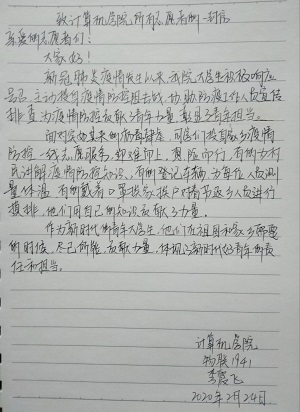 致计算机学院所有志愿者的一封信
亲爱的志愿者们:
大家好!
新冠肺炎疫情发生以来,我院大学生积极响应
号召,主动投身疫情防控阻击战,协助防疫工作人员宣传
排查,为疫情防控贡献青年力量,彰显了青年担当。
面对突如其来的病毒肆虐,同学们投身家乡疫情
防控一线志愿服务,迎难而上,勇毅而行,有的为村
民讲解疫情防控知识,有的登记车辆,为每位人员测
量体温,有的戴着口罩挨家挨户对情节返乡人员进行
摸排,他们用自己的知识贡献了力量。
作为新时代的青年大学生,他们在祖国和家乡需要
的时候,尽己所能,贡献力量,体现了新时代好青年的责
任和担当。
计算机学院
物联1941
李 飞
2020年2月24日